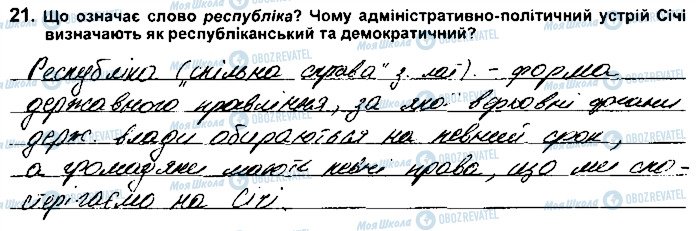 21. Що означає слово республіка? Чому адміністративно-політичний устрій Січі
визначають як республіканський та демократичний?
Республіка („спільна справа" з лат.) - форма
державного правління, за якої верховні органи
держ. влади обираються на певний срок,
а громадяни мають певні права, що ми спо-
стерігаємо на Січі.
Моя Школа OBOZREVATEL